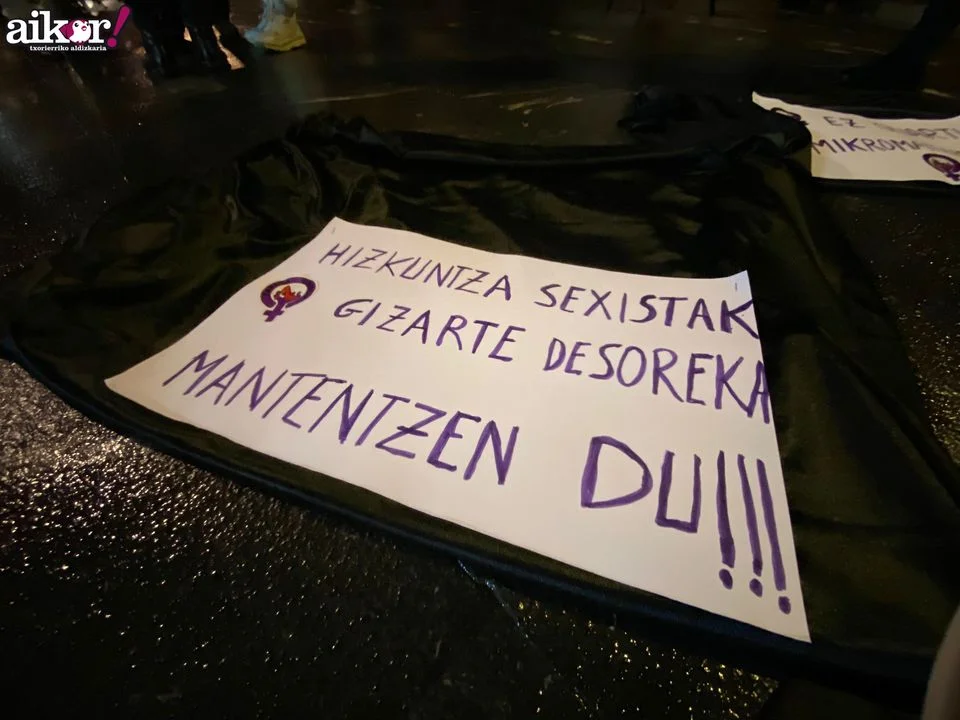 aikor!
txorierriko aldizkaria
EZ
HIZKUNTZA SEXISTAK
GIZARTE DESOREKA
MANTENTZEN DU!!!